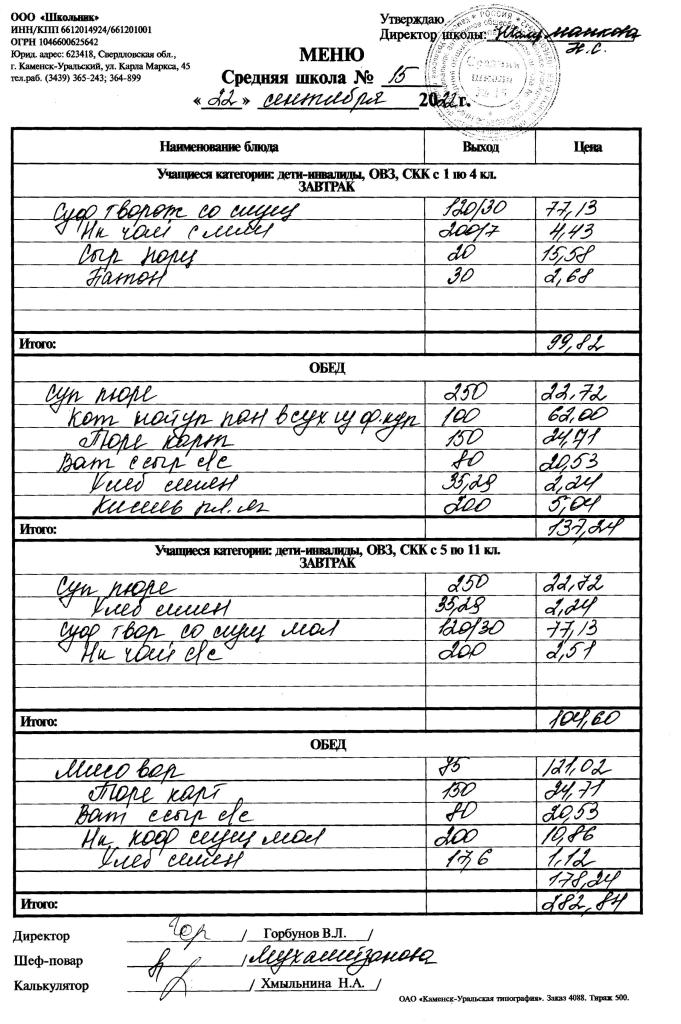 ООО «Школьник»
ИНН/КПП 6612014924/661201001
ОГРН 1046600625642
Юрид. адрес: 623418, Свердловская обл.,
г. Каменск-Уральский, ул. Карла Маркса, 45
тел.раб. (3439) 365-243; 364-899
Утверждаю
Директор школы:
МЕНЮ
Средняя школа № 15
« 22 » сентября 2022 г.
Средняя школа № 15
Наименование блюда Выход Цена
Учащиеся категории: дети-инвалиды, ОВЗ, СКК с 1 по 4 кл.
ЗАВТРАК
Суф творож со сгущ 120/30 77,13
Нк чай с лим 200/7 4,43
Сыр порц 20 15,58
Батон 30 2,68
Итого: 99,82
ОБЕД
Суп пюре 250 22,72
Кот натур пан в сух из ф.кур 100 62,00
Пюре карт 150 24,71
Ват с сыр с/с 80 20,53
Хлеб 35,29 2,24
Кисель пл.яг 200 5,04
Итого: 137,24
Учащиеся категории: дети-инвалиды, ОВЗ, СКК с 5 по 11 кл.
ЗАВТРАК
Суп пюре 250 22,72
Хлеб 35,29 2,24
Суф твор со сгущ мол 120/30 77,13
Нк чай с/с 200 2,51
Итого: 104,60
ОБЕД
Мясо вар 75 121,02
Пюре карт 150 24,71
Ват с сыр с/с 80 20,53
Нк коф сгущ мол 200 10,86
Хлеб 17,6 1,12
178,24
Итого: 282,84
Директор / Горбунов В.Л. /
Шеф-повар / Мухаметзянова
Калькулятор / Хмыльнина Н.А. /
ОАО «Каменск-Уральская типография». Заказ 4088. Тираж 500.